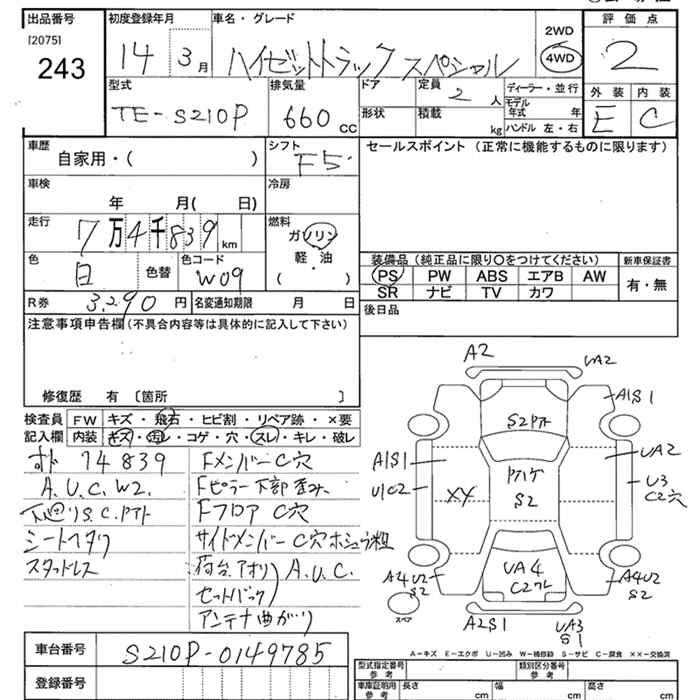 出品番号
[2075]
243
初度登録年月
14 3月
車名・グレード
ハイゼットトラック スペシャル
2WD
4WD
評価点
2
型式
TE-S210P
排気量
660 cc
ドア
形状
定員
2 人
積載
kg
ディーラー・並行
モデル年式 年
ハンドル 左・右
外装 内装
E C
車歴
自家用・( )
シフト
F5
セールスポイント (正常に機能するものに限ります)
車検
年 月( 日)
冷房
走行
7万4千839 km
燃料
ガソリン
軽・油
( ・ )
色
白
色替
色コード
W09
装備品 (純正品に限り○をつけてください)
PS PW ABS エアB AW
SR ナビ TV カワ
新車保証書
有・無
R券
3,290 円
名変通知期限 月 日
後日品
注意事項申告欄 (不具合内容等は具体的に記入して下さい)
修復歴 有 〔箇所 〕
検査員記入欄
FW キズ・飛石・ヒビ割・リペア跡・×要
内装 キズ・汚レ・コゲ・穴・スレ・キレ・破レ
74839
A.U.C.W2.
シートヘタリ
スタッドレス
Fメンバー C穴
Fピラー下部歪み.
Fフロア C穴
サイドメンバー C穴ホシュウ粗
荷台.アオリ A.U.C.
セットバック
アンテナ曲がり
A2
UA2
A1S1
S2アト
A1S1
U1C2
UA2
U3
C2穴
XX
S2
A4U2
S2
UA4
A4U2
S2
スペア
A2S1
UA3
S1
A－キズ E－エクボ U－凹み W－補修跡 S－サビ C－腐食 ××－交換済
車台番号
S210P-0149785
登録番号
型式指定番号
参考
類別区分番号
参考
車庫証明用
参考
長さ cm
幅 cm
高さ cm